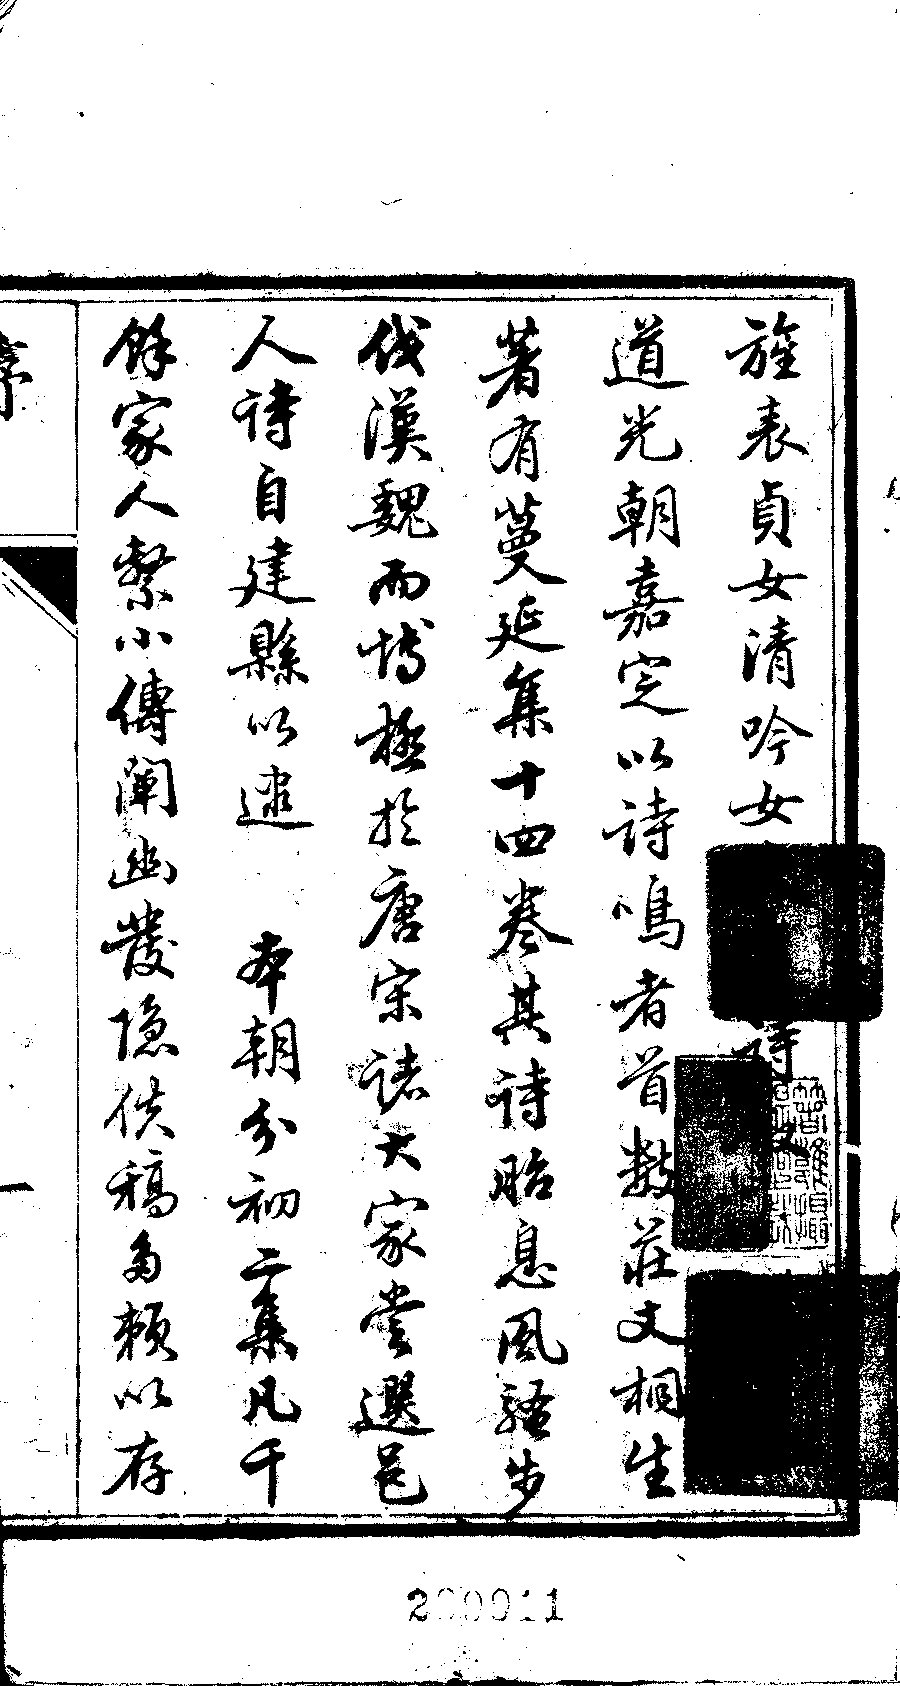 旌表貞女清吟女
詩文
道光朝嘉定以詩鳴者首數莊文桐生
著有蔓延集十四卷其詩胎息風騷步
伐漢魏而博極於唐宋諸大家嘗選邑
人詩自建縣以逮　本朝分初二集凡千
餘家人繫小傳闡幽發隱佚稿多賴以存
序
一
200011